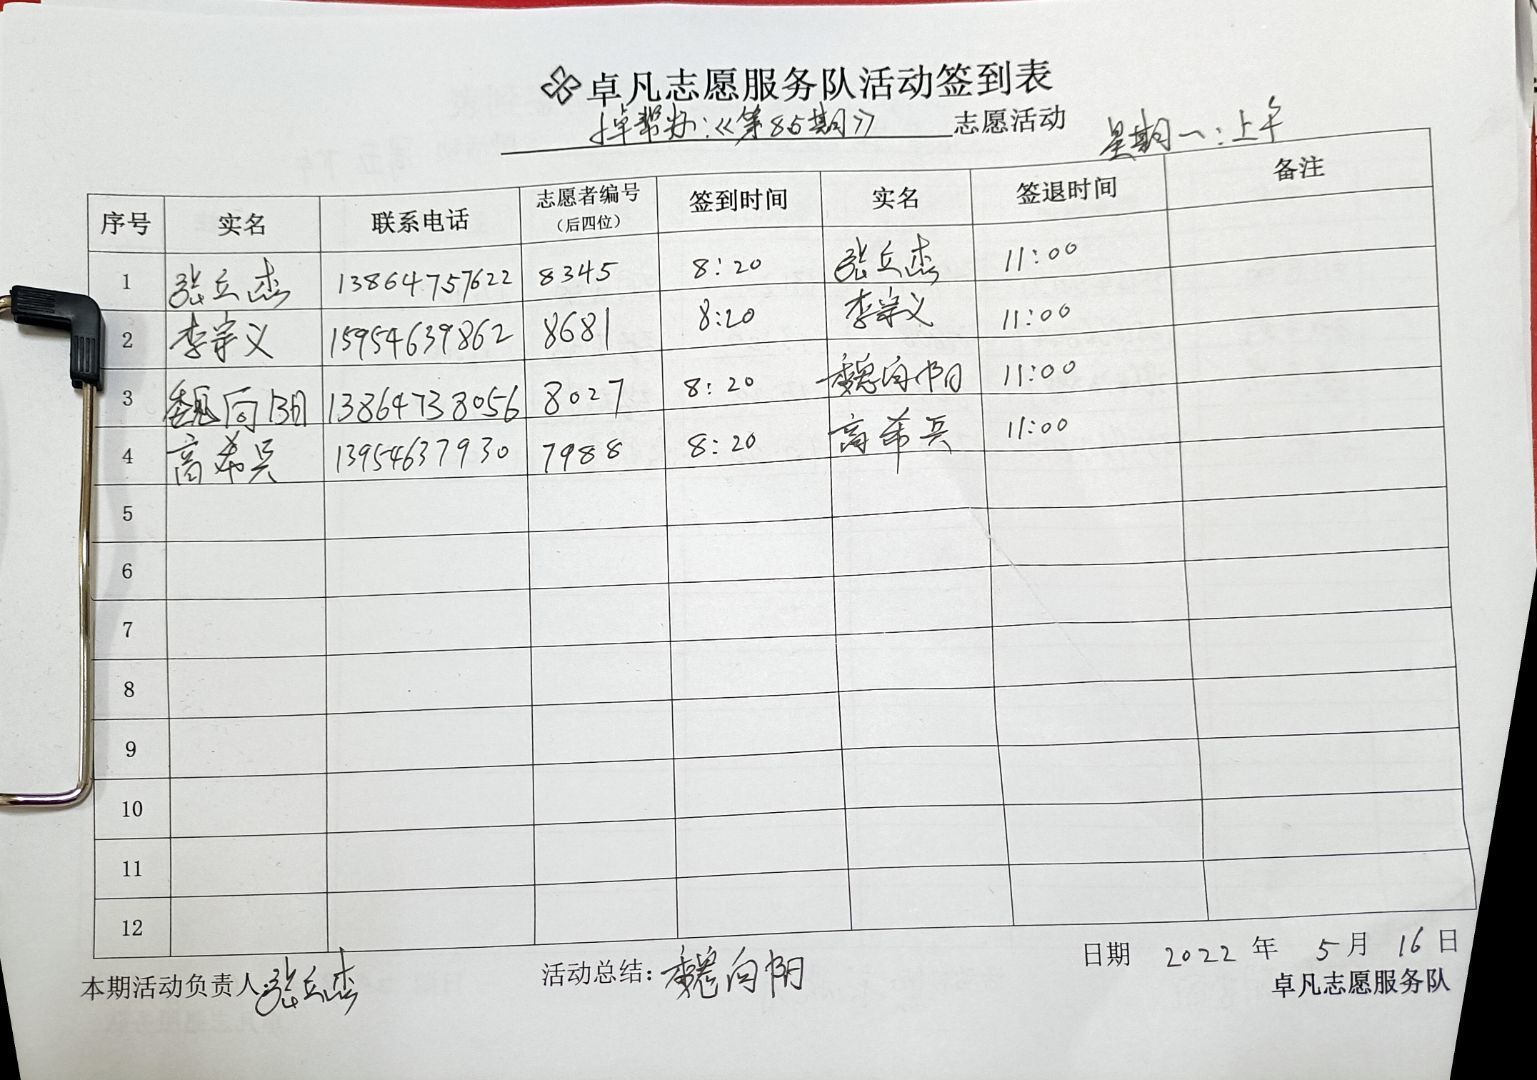 卓凡志愿服务队活动签到表
帮办:《第85期》 志愿活动 星期一:上午
序号 实名 联系电话 志愿者编号（后四位） 签到时间 实名 签退时间 备注
1 张立杰 13864757622 8345 8:20 张立杰 11:00
2 李宗义 15954639862 8681 8:20 李宗义 11:00
3 魏向阳 13864738056 8027 8:20 魏向阳 11:00
4 高希兵 13954637930 7988 8:20 高希兵 11:00
5
6
7
8
9
10
11
12
本期活动负责人:张立杰 活动总结:魏向阳 日期 2022 年 5 月 16 日
卓凡志愿服务队